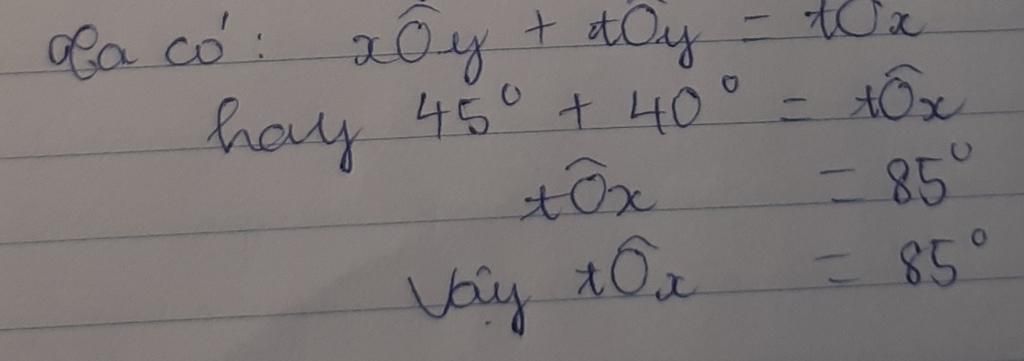 Ta có: xÔy + tÔy = tÔx
hay 45° + 40° = tÔx
tÔx = 85°
Vậy tÔx = 85°